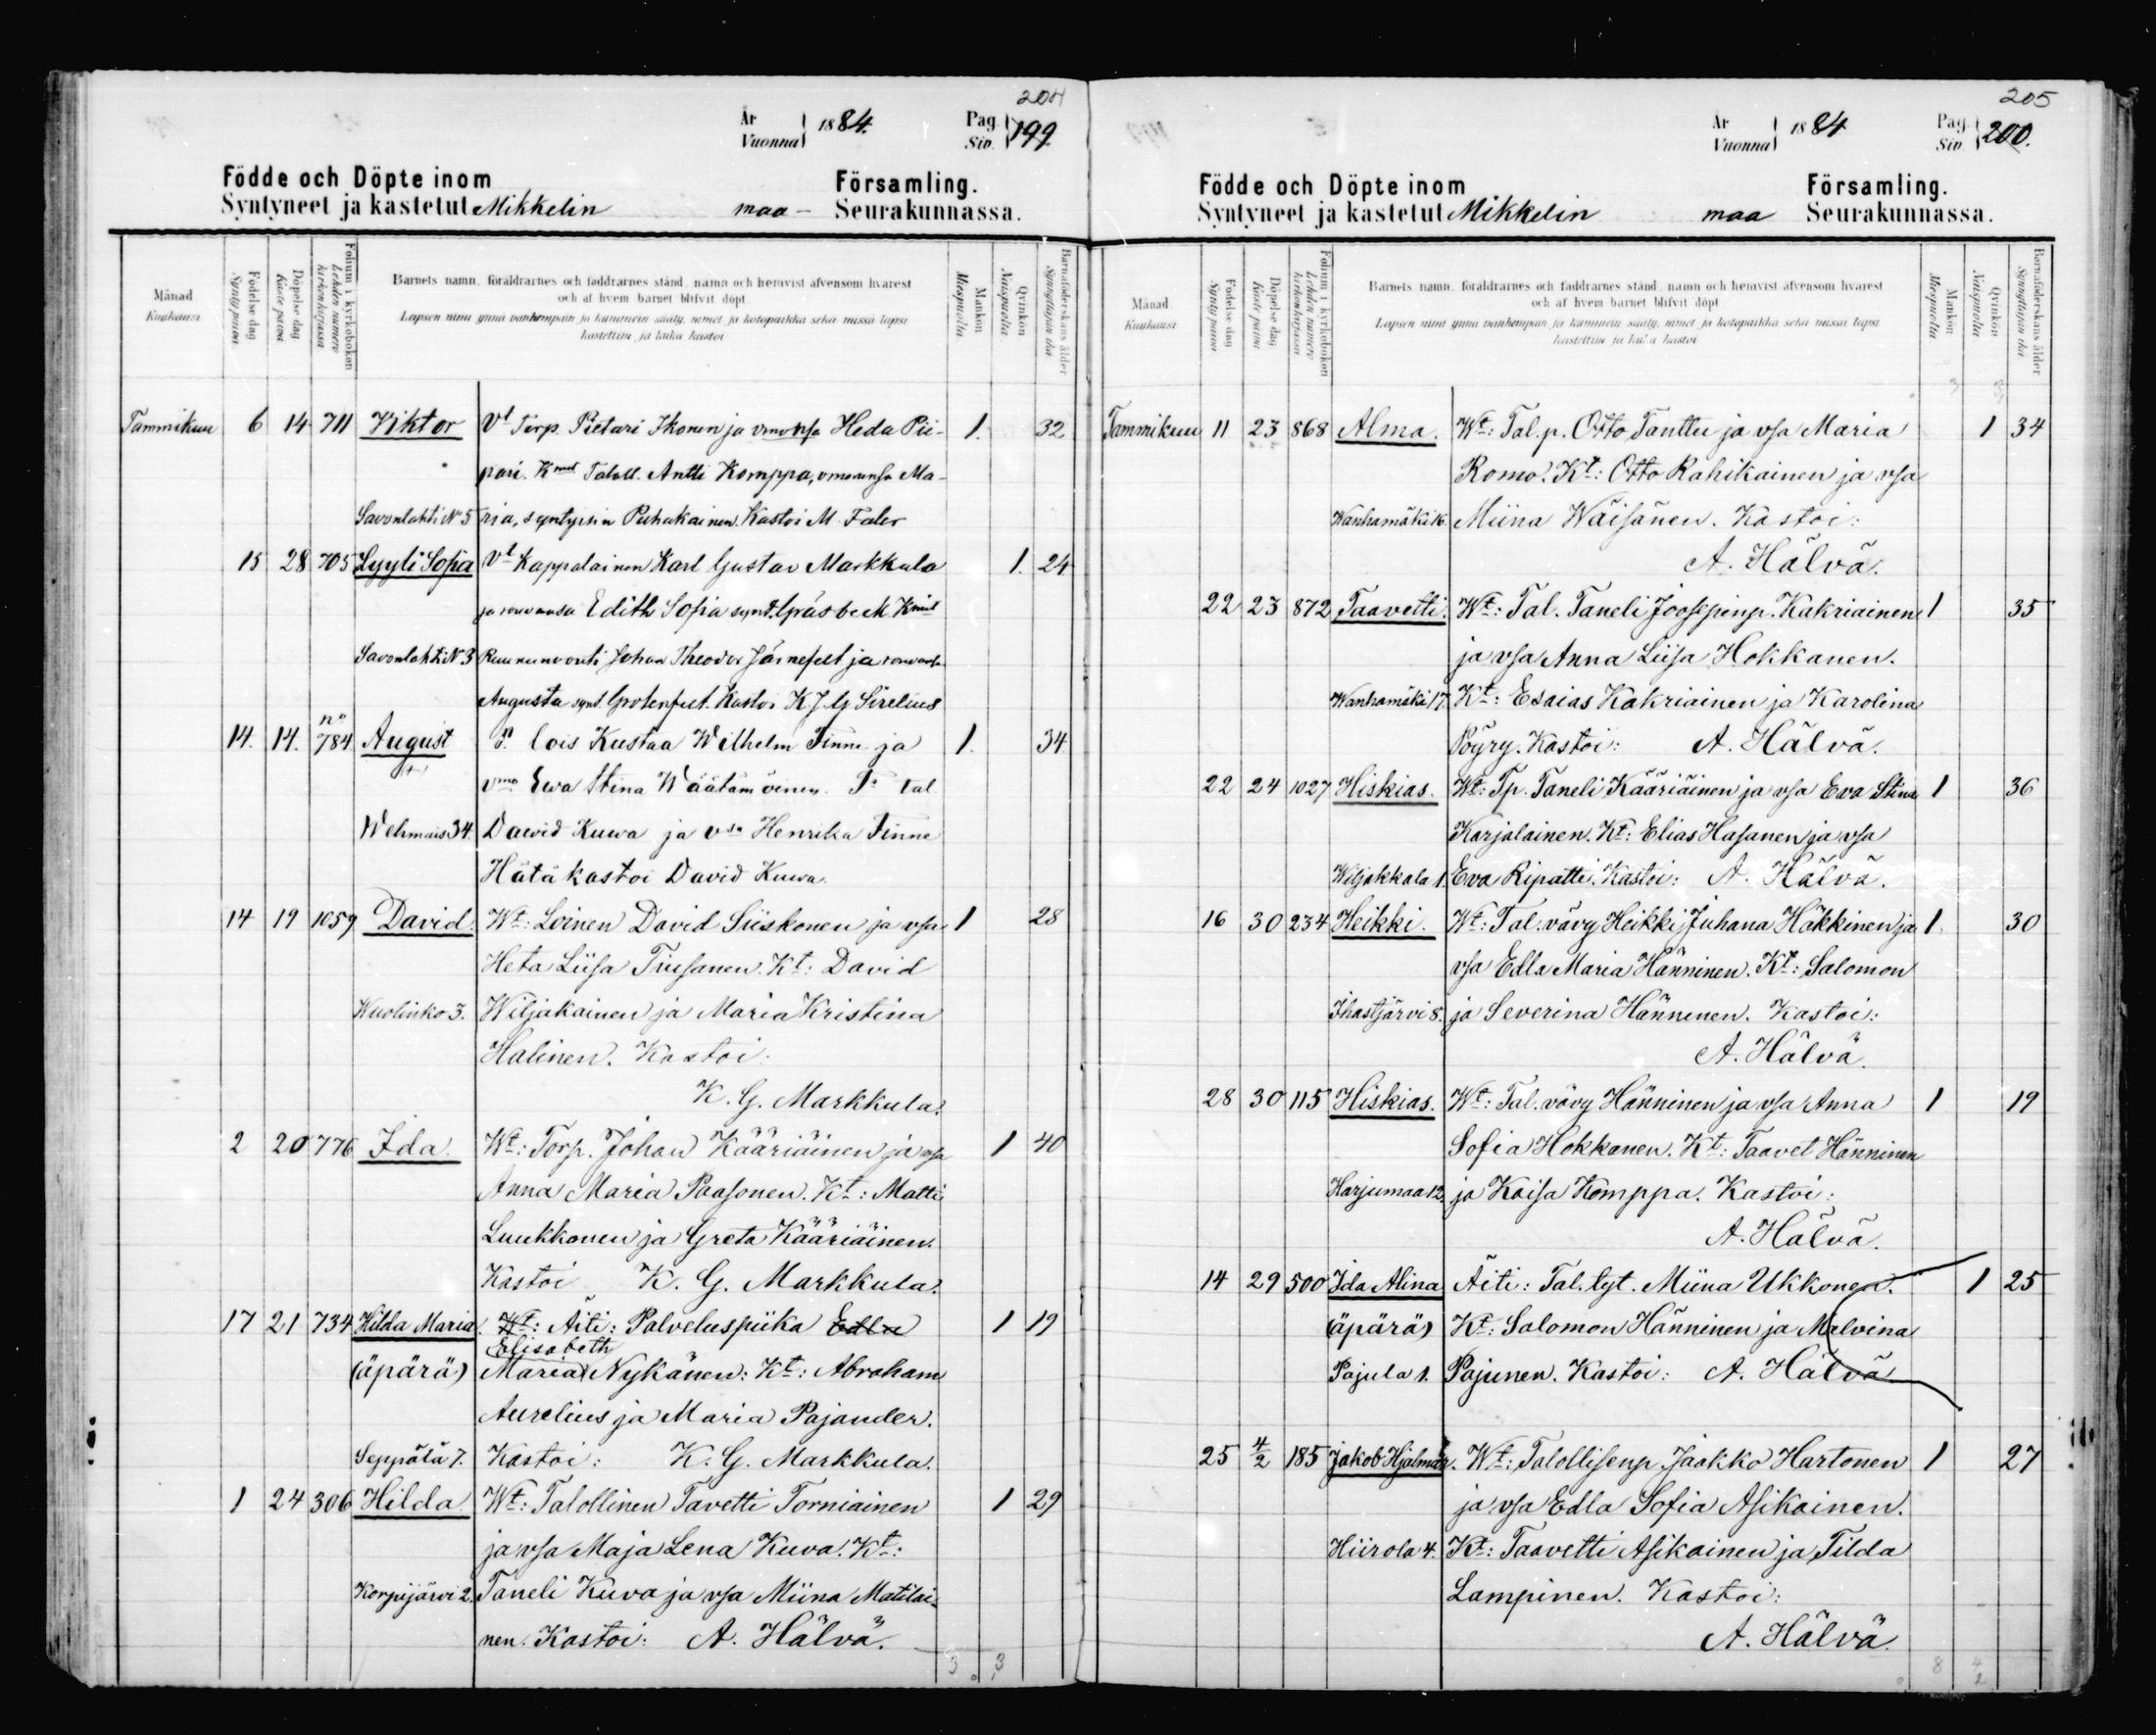 204
År
Vuonna
1884.
Pag.
Siv.
199.
Födde och Döpte inom Församling.
Syntyneet ja kastetut Mikkelin maa- Seurakunnassa.
Månad
Kuukausi
Födelse dag
Syntypäivä
Döpelse dag
Kastepäivä
Folium i kyrkoboken
Lehden numero kirkonkirjassa
Barnets namn, föräldrarnes och faddrarnes stånd, namn och hemvist äfvensom hvarest
och af hvem barnet blifvit döpt
Lapsen nimi ynnä vanhempain ja kummein sääty, nimet ja kotopaikka sekä missä lapsi
kastettiin ja kuka kastoi
Mankön
Miespuolia
Qvinkön
Naispuolia
Barnaföderskans ålder
Synnyttäjän ikä
Tammikuu 6 14 711 Viktor Vt Torp. Pietari Ikonen ja vmonsa Heda Pii- 1. 32
pari. Kmit Taloll. Antti Komppa, vmonsa Ma-
Savonlahti No 5 ria, syntyisin Puhakainen. Kastoi M. Faler
15 28 705 Lyyli Sofia Vt Kappalainen Karl Gustav Markkula 1. 24
ja rouvansa Edith Sofia synt. Gråsbeck Kmit
Savonlahti N 3 Ruununvouti Johan Theodor Järnefelt ja rouvansa
Augusta synt. Grotenfelt. Kastoi K J G Sirelius
14. 14. no 784 August lois Kustaa Wilhelm Finne ja 1. 34
vmo Ewa Stina Wäätämöinen. tal.
Wehmais 34. Dawid Kuwa ja vsa Henrika Finne
Hätäkastoi David Kuwa.
14 19 1059 David. Wt: Loinen David Siiskonen ja vsa 1 28
Heta Liisa Tiusanen. Kt: David
Wuolinko 3. Wiljakainen ja Maria Kristina
Halinen. Kastoi:
K. G. Markkula.
2 20 776 Ida. Wt: Torp. Johan Kääriäinen ja vsa 1 40
Anna Maria Paasonen. Kt: Matti
Luukkonen ja Greta Kääriäinen.
Kastoi K. G. Markkula.
17 21 734 Hilda Maria. Wt: Äiti: Palveluspiika Edla 1 19
Elisabeth
(äpärä) Maria Nykänen: Kt: Abraham
Aurelius ja Maria Pajander.
Seppälä 7. Kastoi: K. G. Markkula.
1 24 306 Hilda Wt: Talollinen Tavetti Torniainen 1 29
ja vsa Maja Lena Kuva. Kt:
Korpijärvi 2. Taneli Kuva ja vsa Miina Matilai-
nen. Kastoi: A. Hälvä.
3 3
205
År
Vuonna
1884
Pag.
Siv.
200.
Födde och Döpte inom Församling.
Syntyneet ja kastetut Mikkelin maa Seurakunnassa.
Månad
Kuukausi
Födelse dag
Syntypäivä
Döpelse dag
Kastepäivä
Folium i kyrkoboken
Lehden numero kirkonkirjassa
Barnets namn, föräldrarnes och faddrarnes stånd, namn och hemvist äfvensom hvarest
och af hvem barnet blifvit döpt
Lapsen nimi ynnä vanhempain ja kummein sääty, nimet ja kotopaikka sekä missä lapsi
kastettiin ja kuka kastoi
Mankön
Miespuolia
Qvinkön
Naispuolia
Barnaföderskans ålder
Synnyttäjän ikä
3 3
Tammikuu 11 23 868 Alma. Wt: Tal.p. Otto Tanttu ja vsa Maria 1 34
Romo. Kt: Otto Rahikainen ja vsa
Wanhamäki 16. Miina Wäisänen. Kastoi:
A. Hälvä.
22 23 872 Taavetti. Wt: Tal. Taneli Joosepinp. Kakriainen 1 35
ja vsa Anna Liisa Hokkanen.
Wanhamäki 17. Kt: Esaias Kakriainen ja Karolina
Pöyry. Kastoi: A. Hälvä.
22 24 1027 Hiskias. Wt: Tp. Taneli Kääriäinen ja vsa Eva Stina 1 36
Karjalainen. Kt: Elias Hasanen ja vsa
Wiljakkala 1. Eva Ripatti. Kastoi: A. Hälvä.
16 30 234 Heikki. Wt: Tal. vävy Heikki Juhana Häkkinen ja 1. 30
vsa Edla Maria Hänninen. Kt: Salomon
Ihastjärvi 8. ja Severina Hänninen. Kastoi:
A. Hälvä.
28 30 115 Hiskias. Wt: Tal. vävy Hänninen ja vsa Anna 1 19
Sofia Hokkanen. Kt: Taavet Hänninen
Harjumaa 12. ja Kaisa Komppa. Kastoi:
A. Hälvä.
14 29 500 Ida Alina Äiti: Tal. tyt. Miina Ukkonen. 1 25
(äpärä) Kt: Salomon Hänninen ja Malvina
Pajula 1. Pajunen. Kastoi: A. Hälvä
25 4/2 185 Jakob Hjalmar. Wt: Talollisenp. Jaakko Hartonen 1 27
ja vsa Edla Sofia Asikainen.
Hiirola 4. Kt: Taavetti Asikainen ja Tilda
Lampinen. Kastoi:
A. Hälvä.
8 4
2